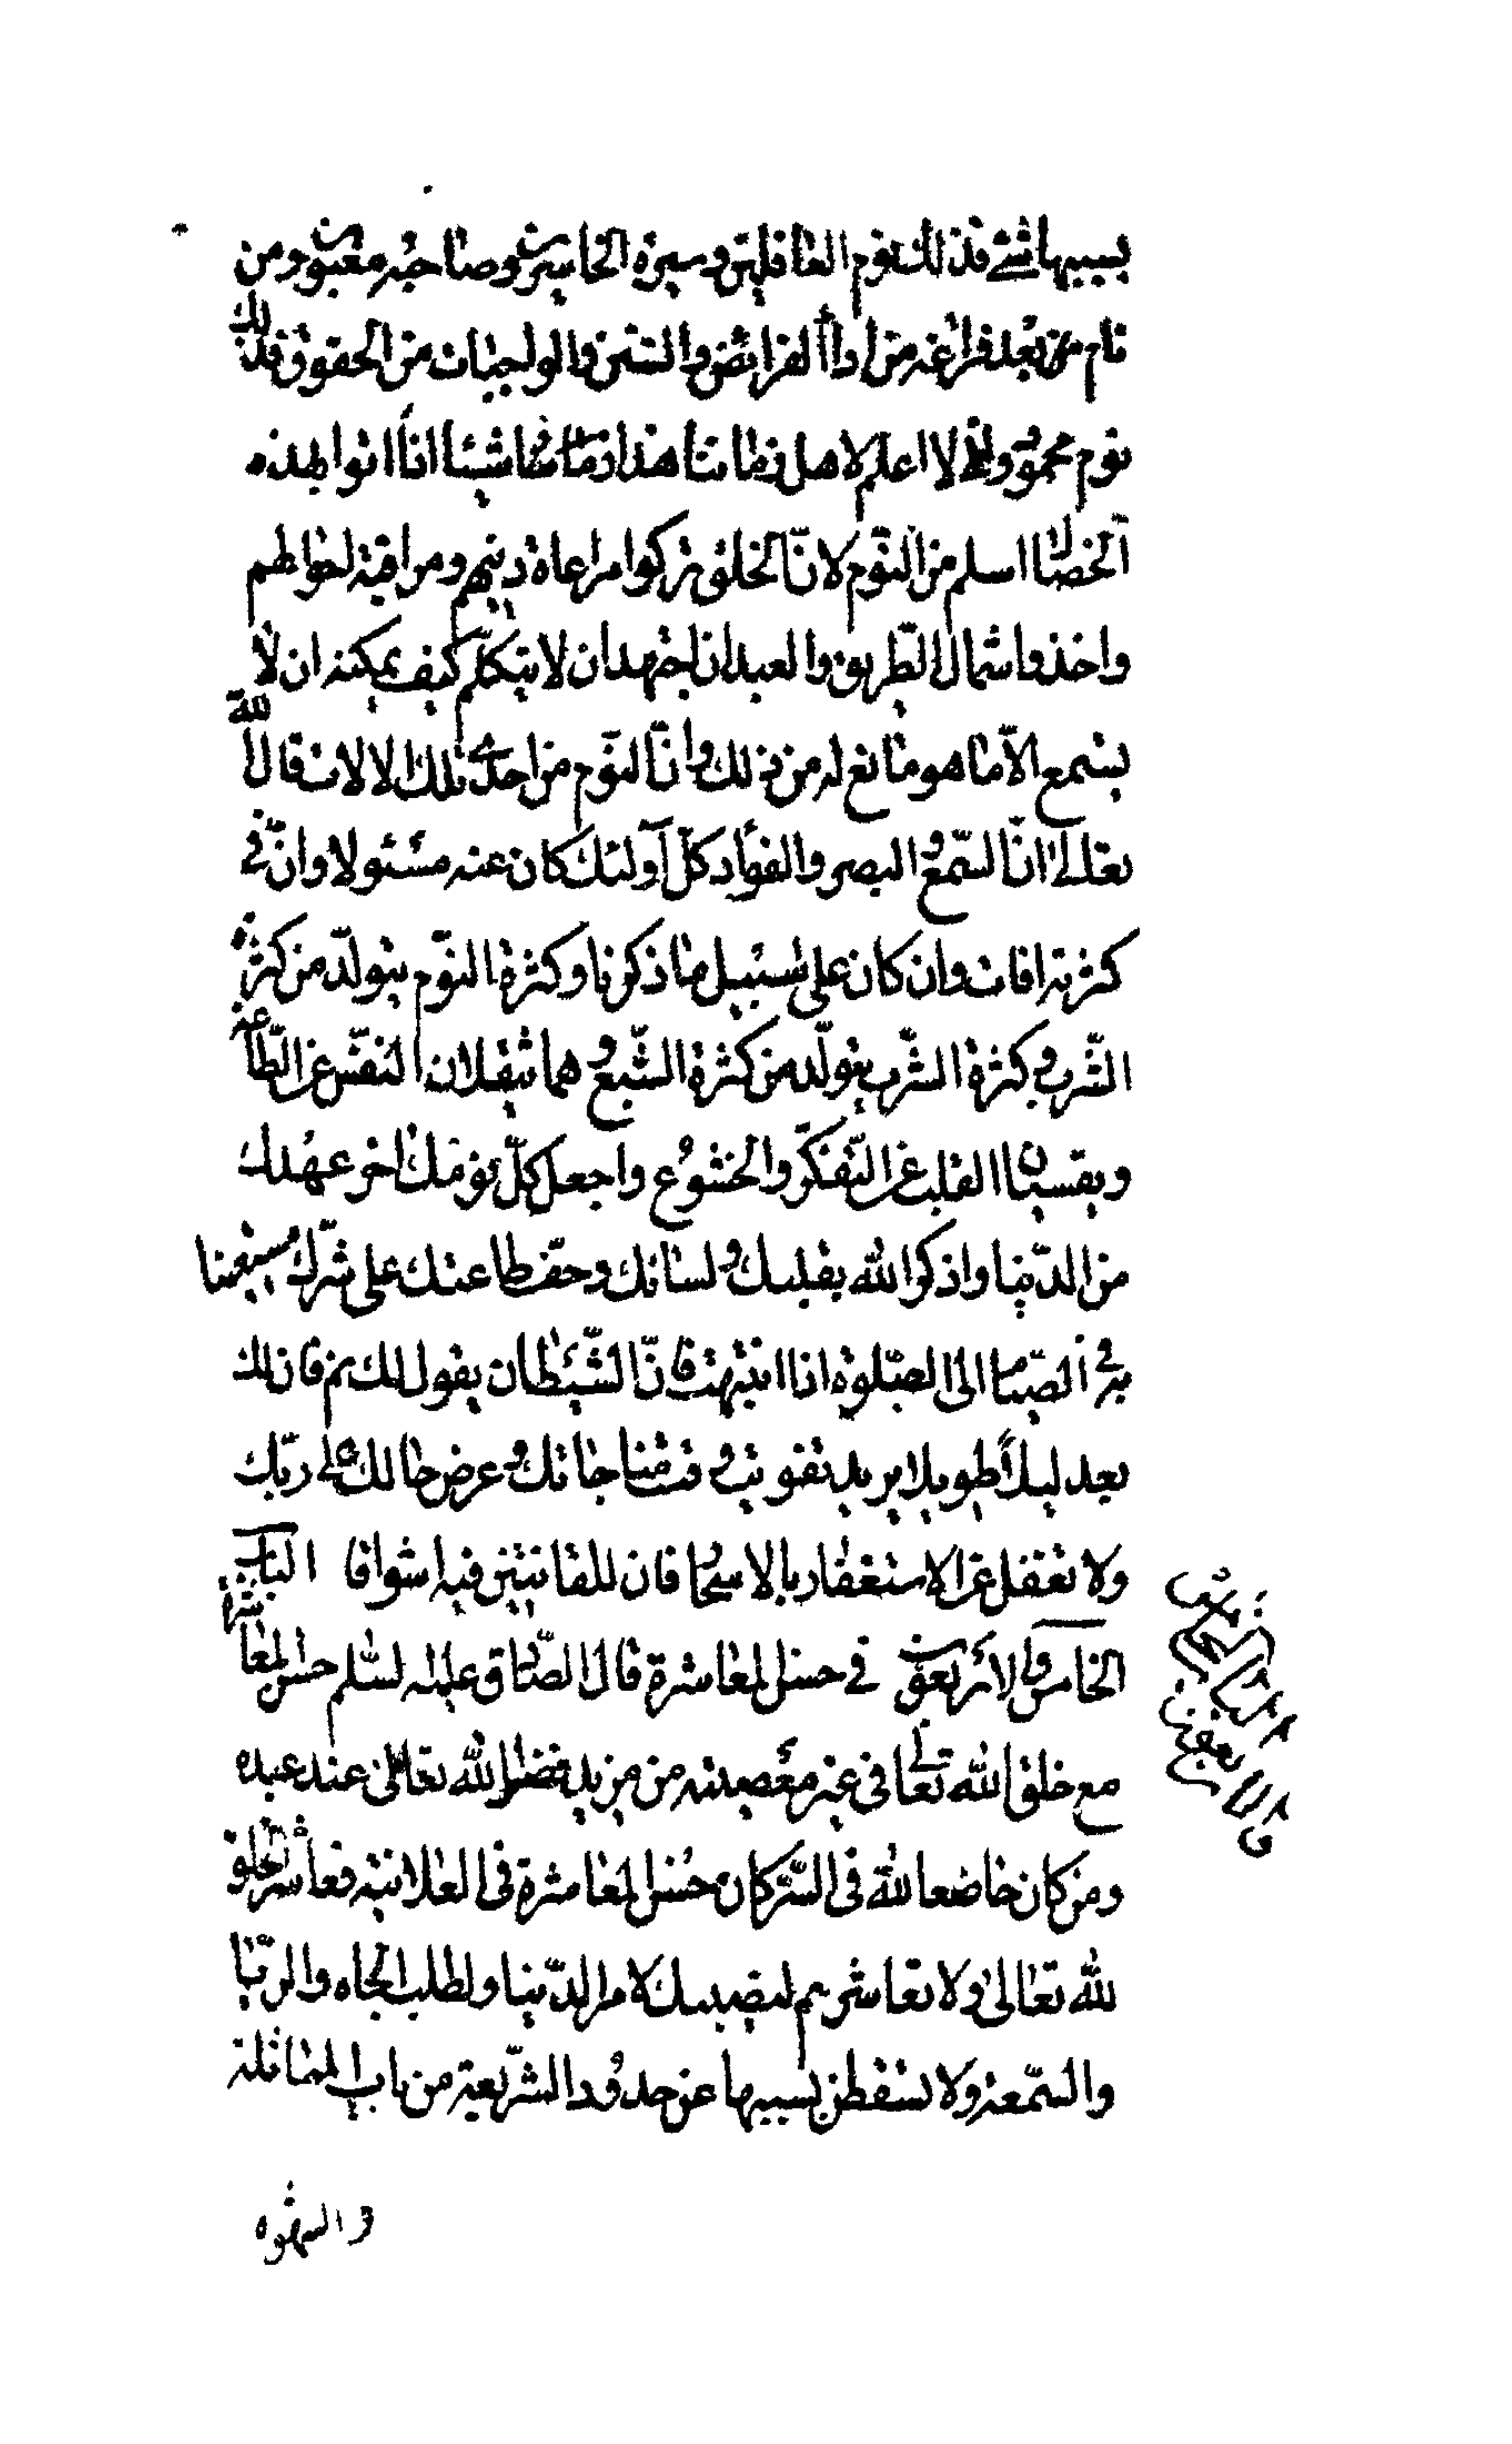 بسببها شئ فذلك نوم الغافلين وسيرة الخاسرين وصاحبه مغبون ومن
نام من بعد فراغه من اداء الفرائض والسنن والواجبات من الحقوق فذلك
نوم محمود وانى لا اعلم لاهل زماننا هذا شيئا اذا اتوا بهذه
الخصال اسلم من النوم لان الخلق تركوا مراعاة دينهم ومراقبة احوالهم
واخذوا شمال الطريق والعبد ان اجتهد ان لا يتكلم كيف يمكنه ان لا
يسمع الا ما هو مانع له من ذلك وان النوم من احدى تلك الالات قال الله
تعالى ان السمع والبصر والفؤاد كل اولئك كان عنه مسئولا وان فى
كثرته افات وان كان على سبيل ما ذكرنا وكثرة النوم يتولد من كثرة
الشرب وكثرة الشرب يتولد من كثرة الشبع وهما يثقلان النفس عن الطاعة
ويقسيان القلب عن التفكر والخشوع واجعل كل نومك اخر عهدك
من الدنيا واذكر الله بقلبك ولسانك وحف طاعتك على شرك مستعينا
به فى القيام الى الصلوة اذا انتبهت فان الشيطان يقول لك نم فان لك
بعد ليلا طويلا يريد تفويت وقت مناجاتك وعرض حالك على ربك
ولا تغفل عن الاستغفار بالاسحار فان للقانتين فيه اشواقا الباب
الخامس والاربعون فى حسن المعاشرة قال الصادق عليه السلم حسن المعاشرة
مع خلق الله تعالى فى غير معصيته من مزيد فضل الله تعالى عند عبده
ومن كان خاضعا لله فى السر كان حسن المعاشرة فى العلانية فعاشر الخلق
لله تعالى ولا تعاشرهم لنصيبك لامر الدنيا ولطلب الجاه والريا
والسمعة ولا تسقطن بسببها عن حدود الشريعة من باب المماثلة
والشهرة